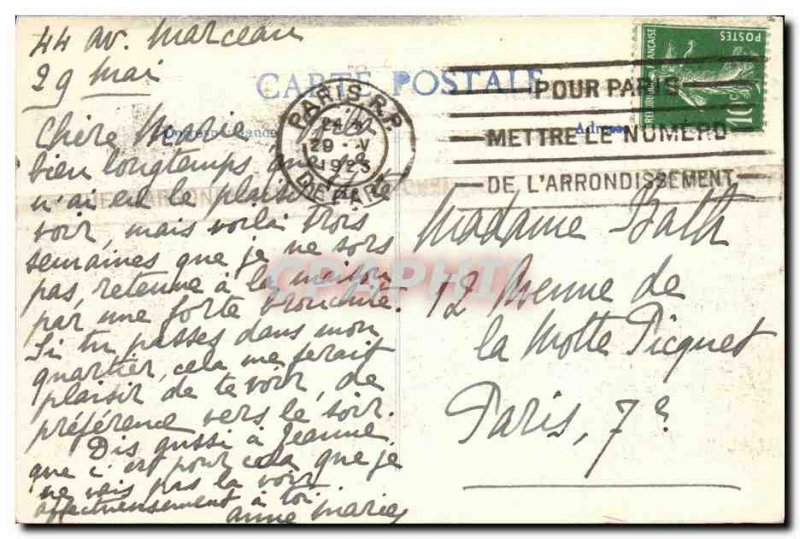 44 av. Marceau
29 Mai
CARTE POSTALE
Chère Marie
bien longtemps que je
n'ai eu le plaisir de te
voir, mais voilà trois
semaines que je ne sors
pas, retenue à la maison
par une forte bronchite.
Si tu passes dans mon
quartier, cela me ferait
plaisir de te voir, de
préférence vers le soir.
Dis aussi à Jeanne
que c'est pour cela que je
ne vais pas la voir
affectueusement à toi
anne marie
PARIS R.P.
29 - V
1925
DEPART
POUR PARIS
METTRE LE NUMERO
DE L'ARRONDISSEMENT
POSTES
REPUBLIQUE FRANÇAISE
10c
Adresse
Madame Bath
12 Avenue de
la Motte Picquet
Paris, 7e